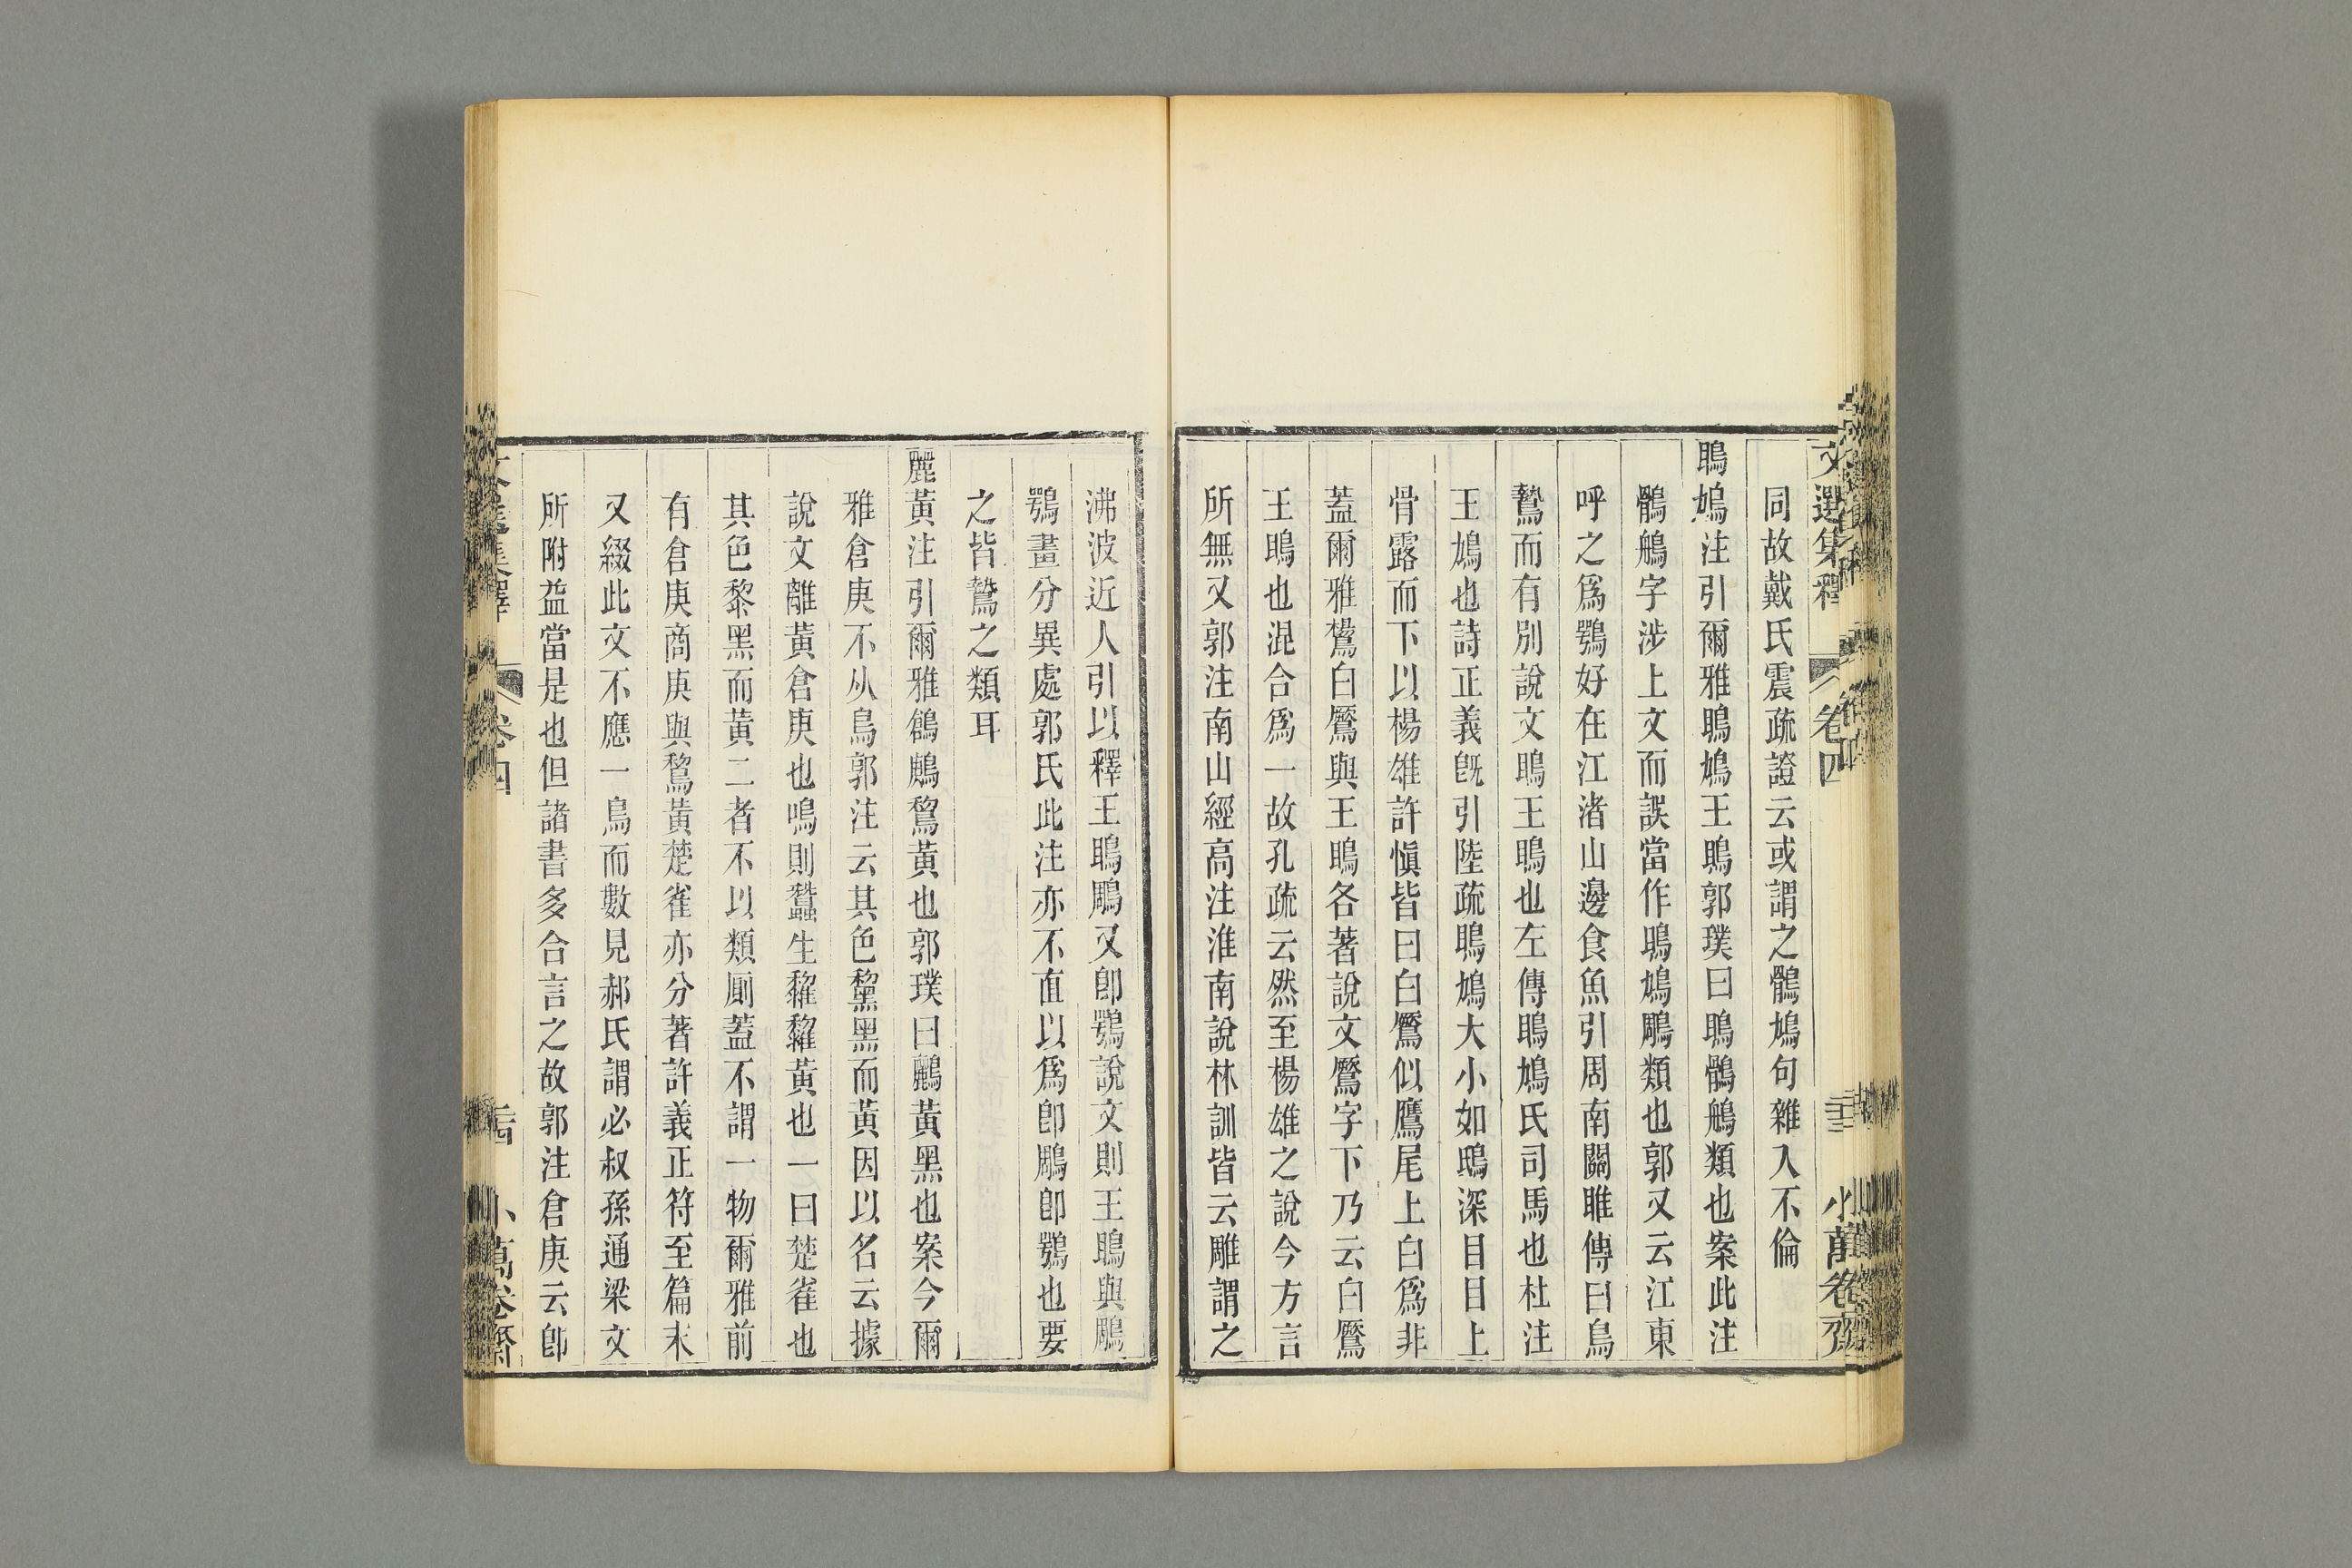 文選集釋 卷四 小萬卷齋
同故戴氏震疏證云或謂之鶻鳩句雜入不倫
鴡鳩注引爾雅鴡鳩王鴡郭璞曰鴡鶻鵃類也案此注
鶻鵃字涉上文而誤當作鴡鳩鵰類也郭又云江東
呼之爲鶚好在江渚山邊食魚引周南關雎傳曰鳥
鷙而有別說文鴡王鴡也左傳鴡鳩氏司馬也杜注
王鳩也詩正義旣引陸疏鴡鳩大小如鴟深目目上
骨露而下以楊雄許愼皆曰白鷢似鷹尾上白爲非
蓋爾雅鸉白鷢與王鴡各著說文鷢字下乃云白鷢
王鴡也混合爲一故孔疏云然至楊雄之說今方言
所無又郭注南山經高注淮南說林訓皆云雕謂之
沸波近人引以釋王鴡鵰又卽鶚說文則王鴡與鵰
鶚畫分異處郭氏此注亦不直以爲卽鵰卽鶚也要
之皆鷙之類耳
麗黃注引爾雅鶬鶊鵹黃也郭璞曰鸝黃黑也案今爾
雅倉庚不从鳥郭注云其色黧黑而黃因以名云據
說文離黃倉庚也鳴則蠶生雡雡黃也一曰楚雀也
其色黎黑而黃二者不以類厠蓋不謂一物爾雅前
有倉庚商庚與鵹黃楚雀亦分著許義正符至篇末
又綴此文不應一鳥而數見郝氏謂必叔孫通梁文
所附益當是也但諸書多合言之故郭注倉庚云卽
卷四 小萬卷齋